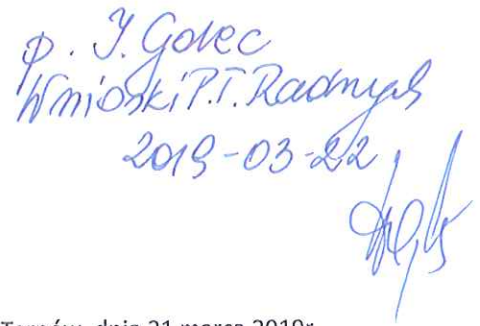 p. J. Golec
Wnioski P.T. Radnych
2019-03-22
Tarnów, dnia 21 marca 2019r.